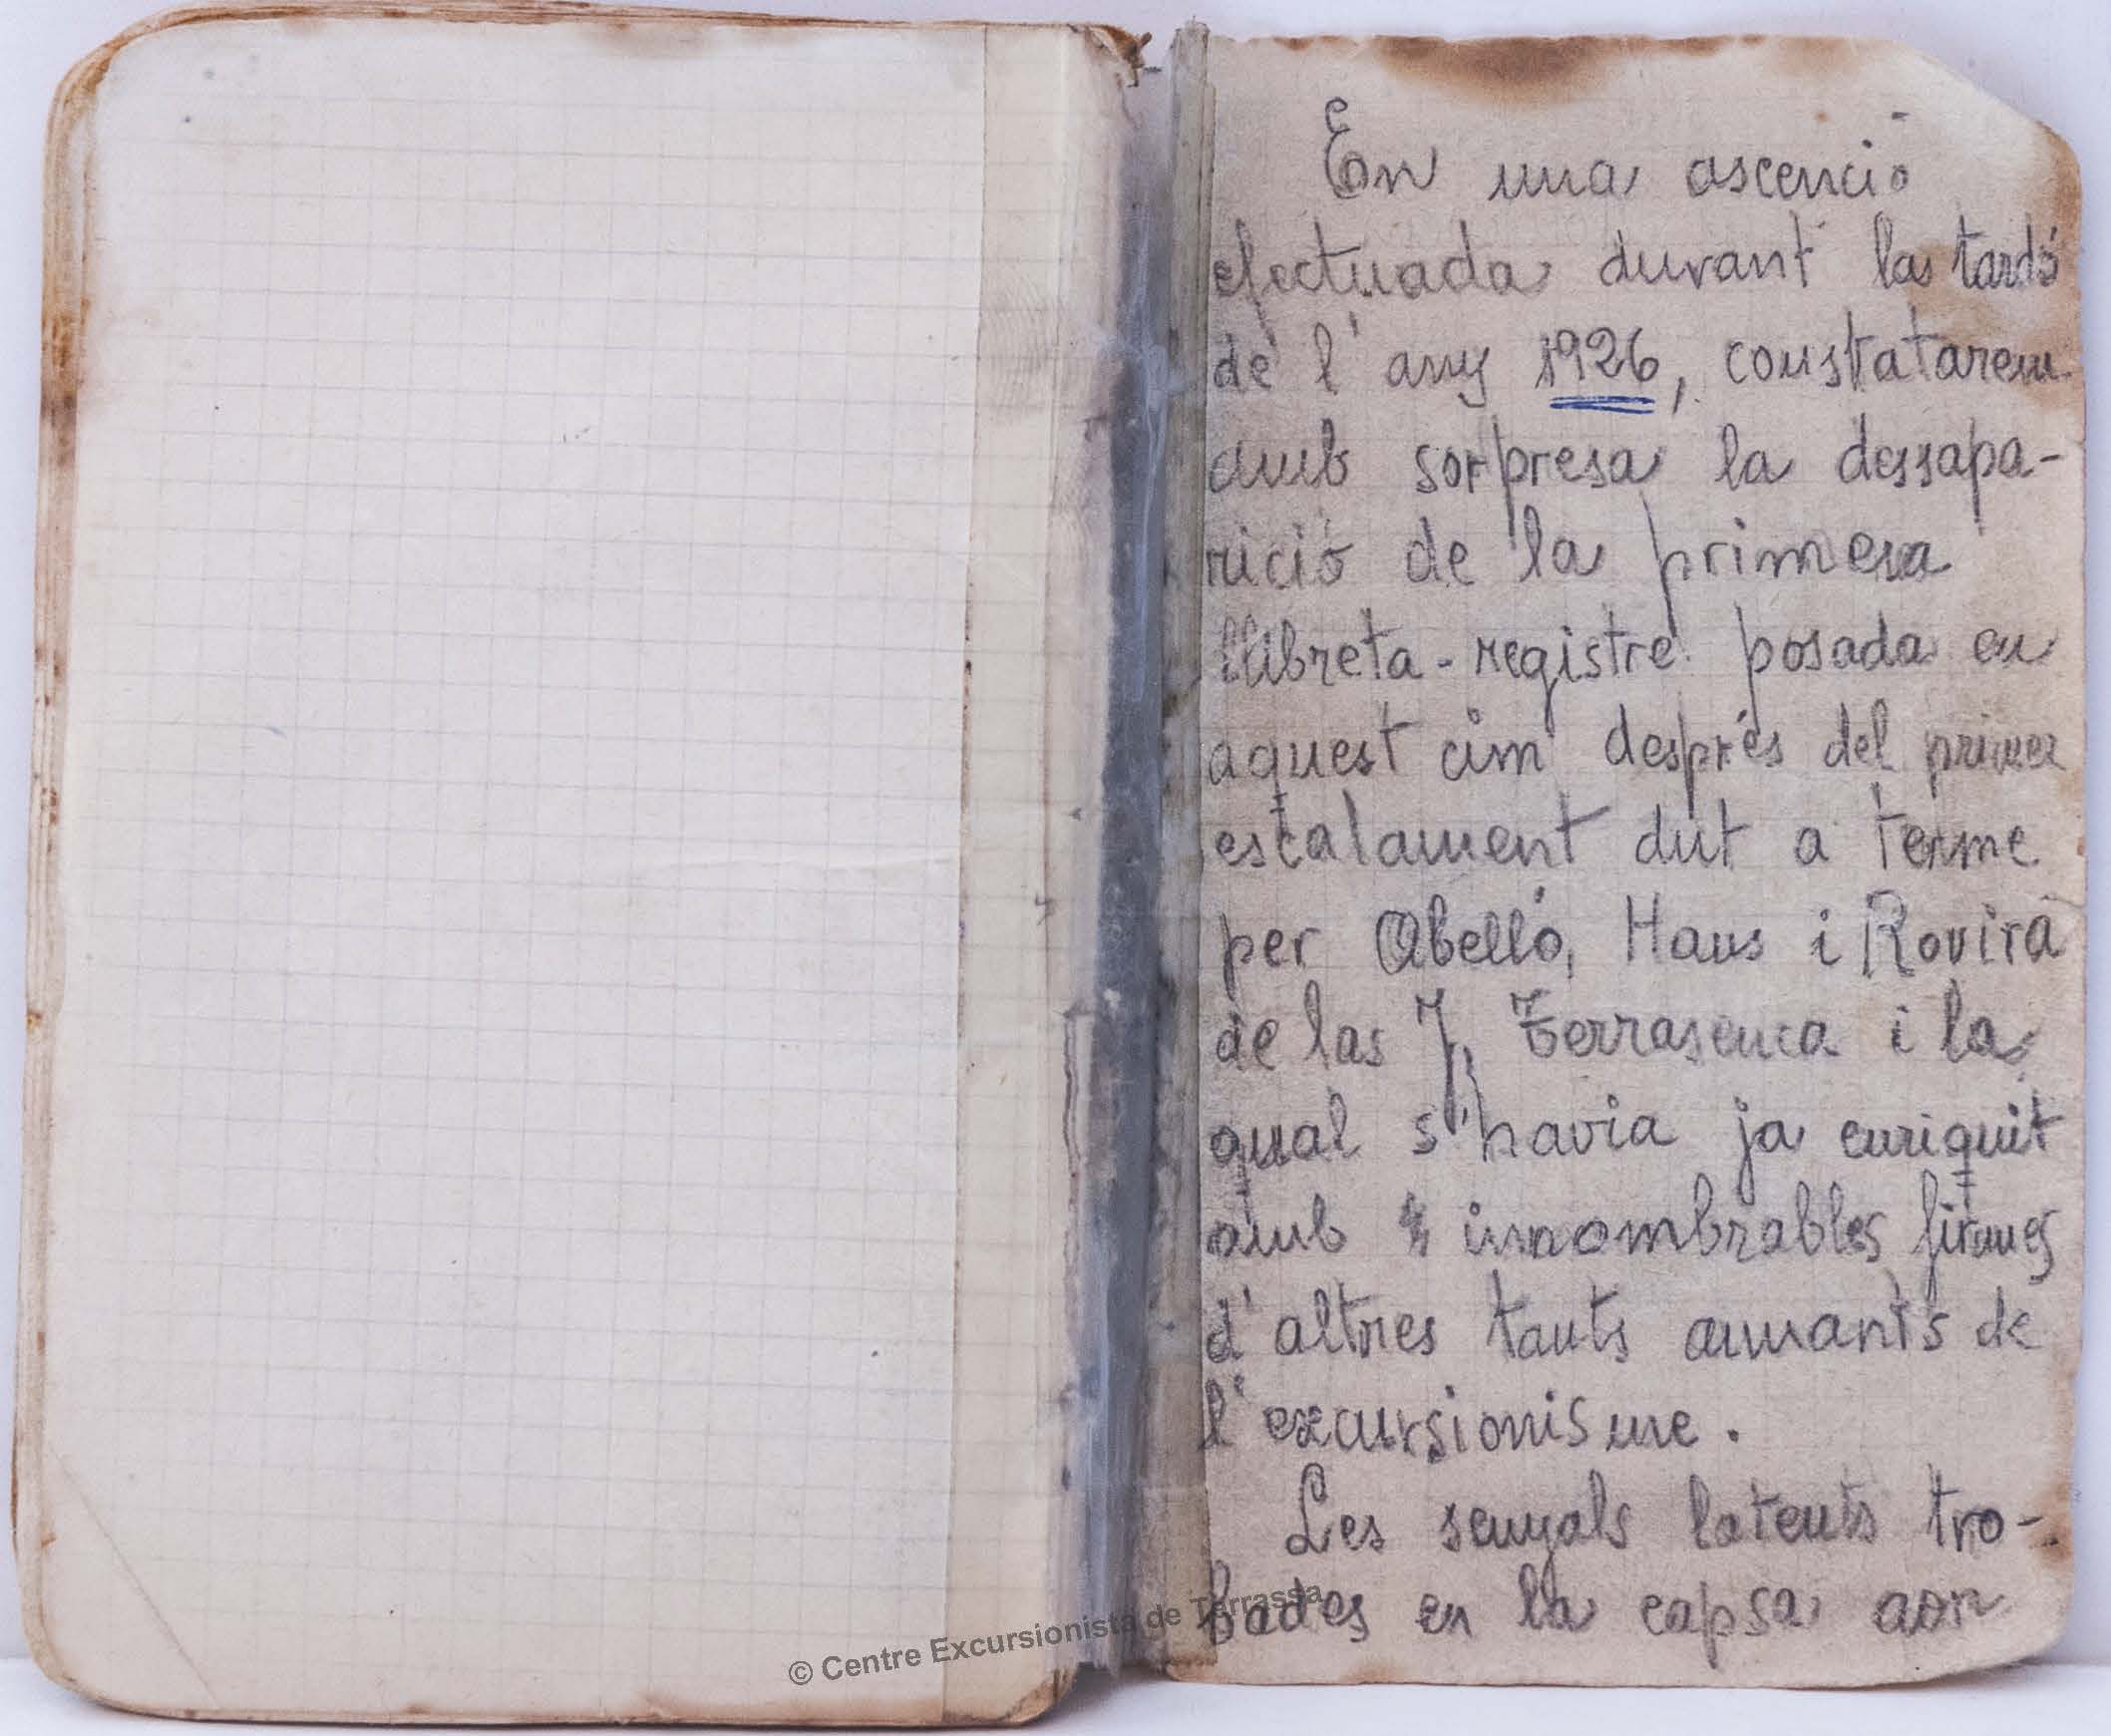 En una ascenció
efectuada durant la tardó
de l'any 1926, constatarem
amb sorpresa la dessapa-
rició de la primera
llibreta-registre posada en
aquest cim després del primer
escalament dut a terme
per Abelló, Haus i Rovira
de las J. Terrasenca i la
qual s'havia ja enriquit
amb innombrables firmes
d'altres tants amants de
l'excursionisme.
Les senyals latents tro-
bades en la capsa aon
© Centre Excursionista de Terrassa